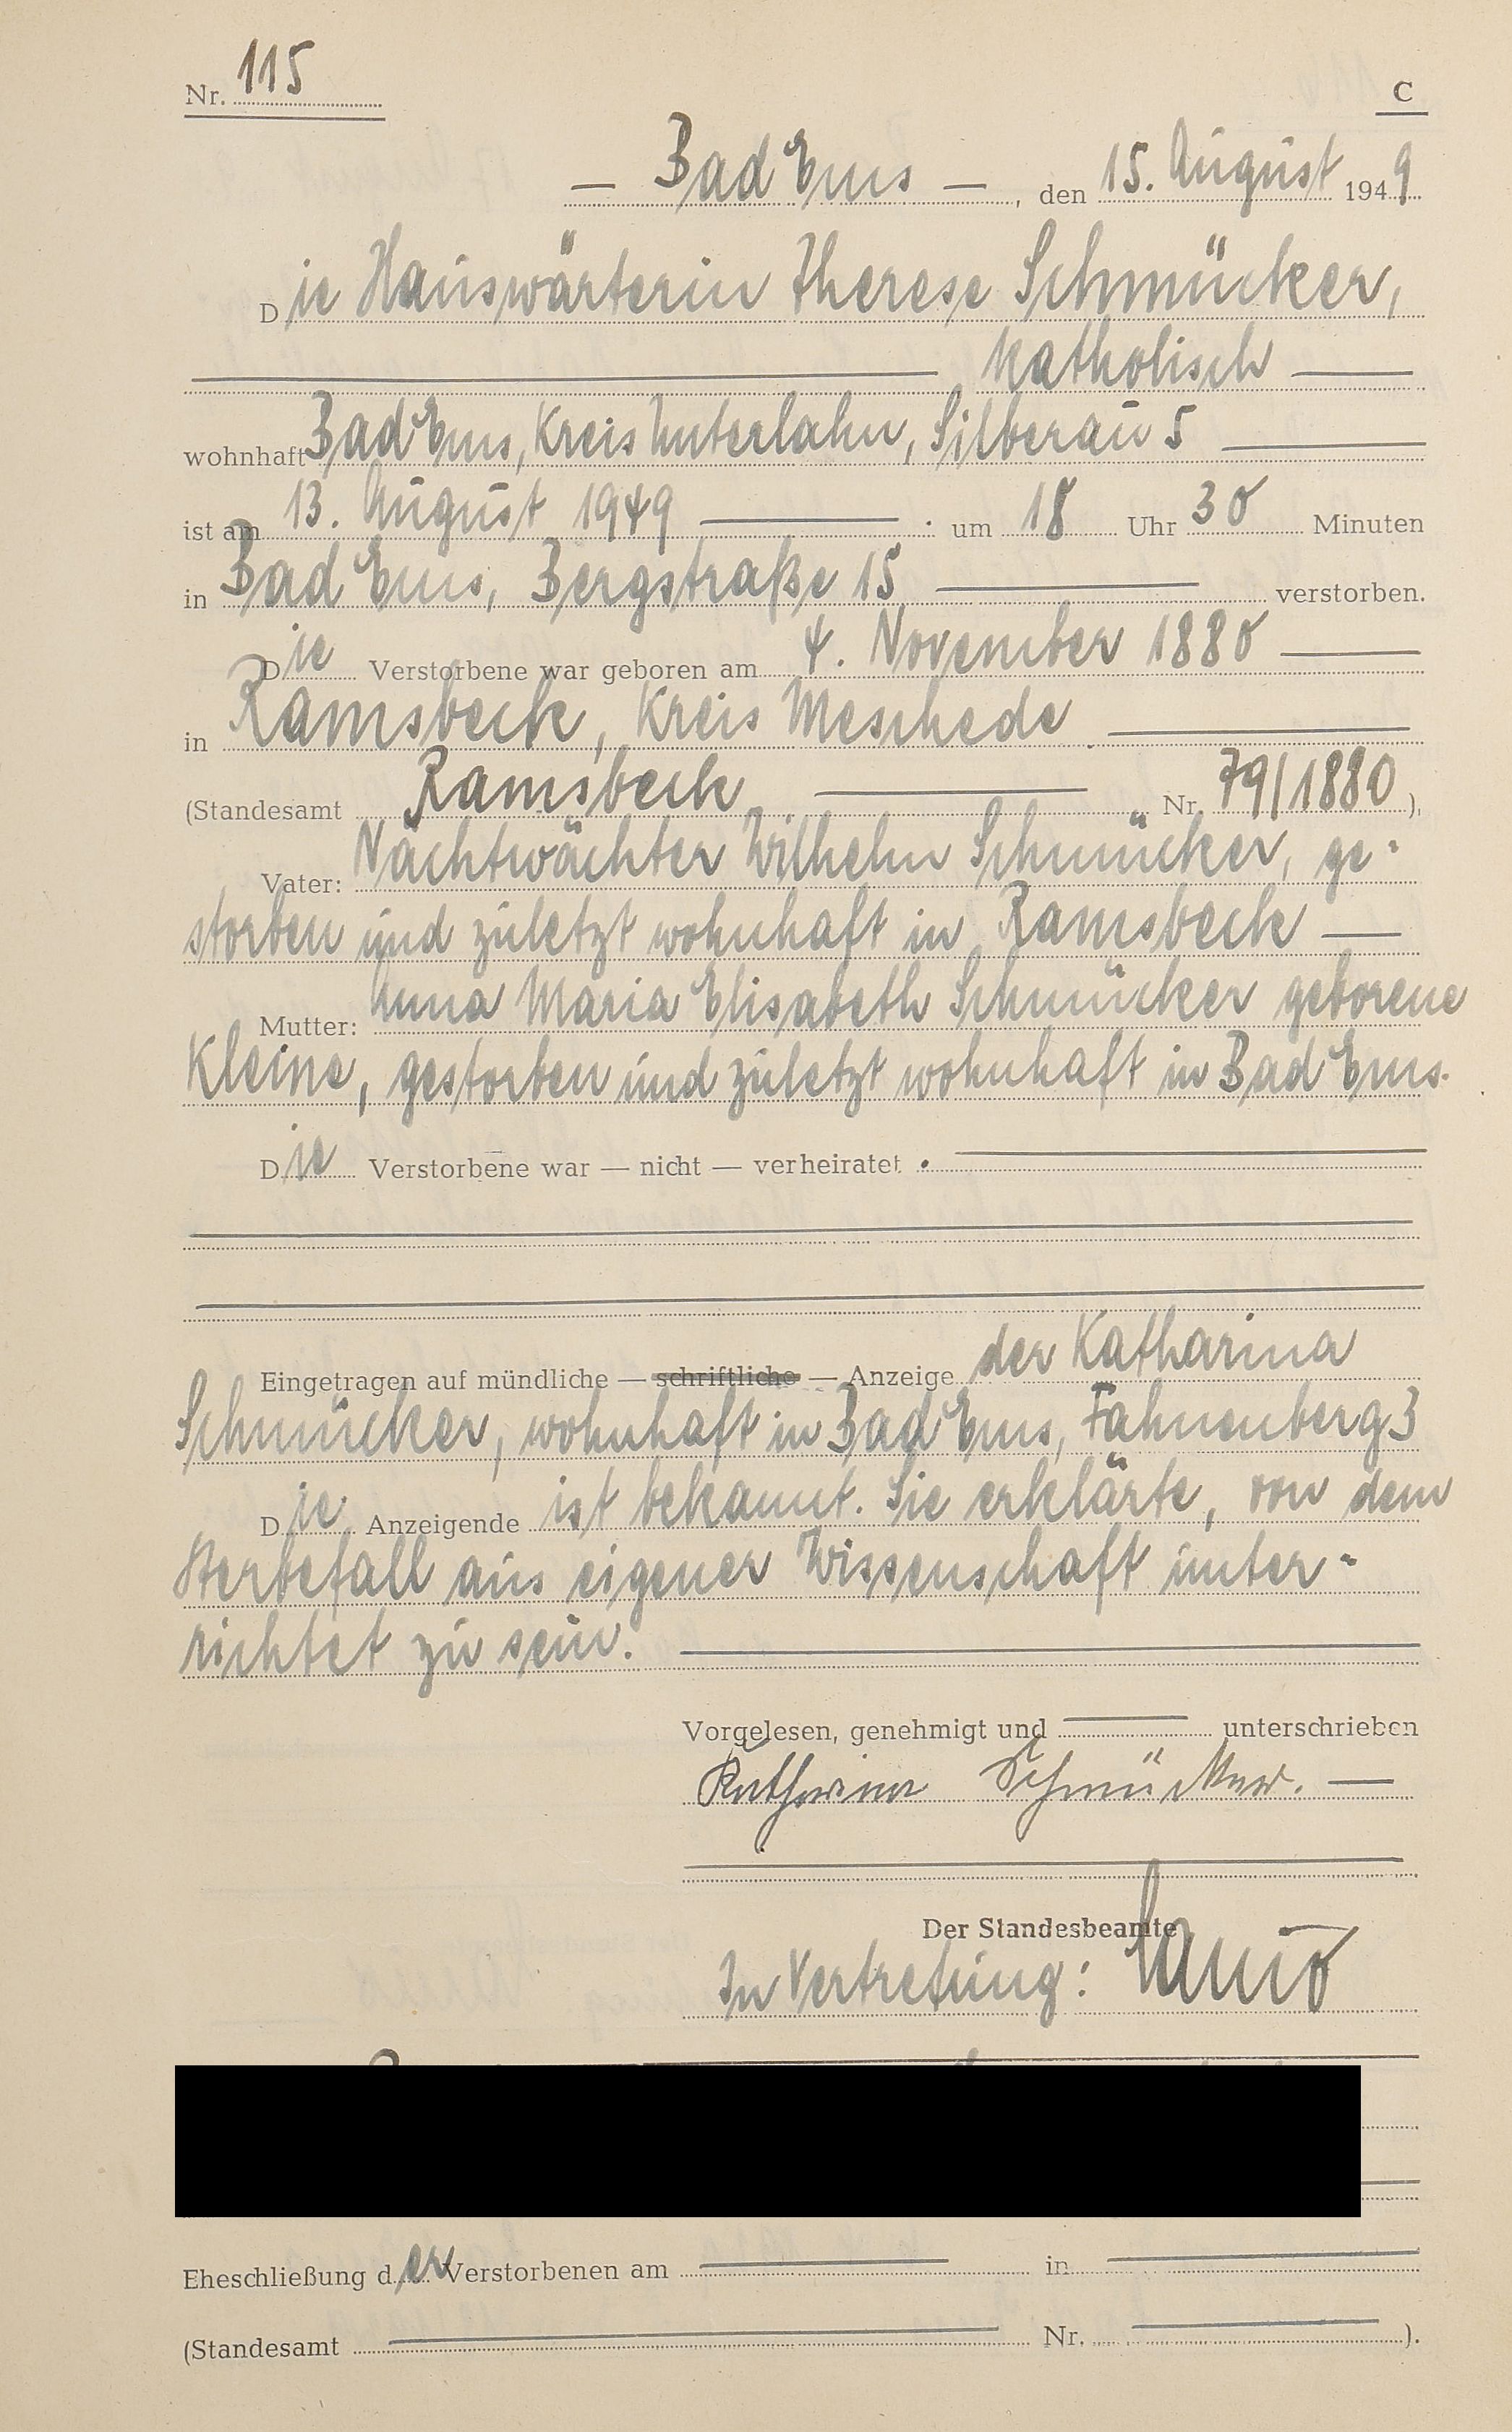 Nr. 115
C
— Bad Ems —, den 15. August 1949
Die Hauswärterin Therese Schmücker,
katholisch
wohnhaft Bad Ems, Kreis Unterlahn, Silberau 5
ist am 13. August 1949 um 18 Uhr 30 Minuten
in Bad Ems, Bergstraße 15 verstorben.
Die Verstorbene war geboren am 4. November 1880
in Ramsbeck, Kreis Meschede
(Standesamt Ramsbeck Nr. 79/1880),
Vater: Nachtwächter Wilhelm Schmücker, ge-
storben und zuletzt wohnhaft in Ramsbeck —
Mutter: Anna Maria Elisabeth Schmücker geborene
Kleine, gestorben und zuletzt wohnhaft in Bad Ems.
Die Verstorbene war — nicht — verheiratet.
Eingetragen auf mündliche — schriftliche — Anzeige der Katharina
Schmücker, wohnhaft in Bad Ems, Fahnenberg 3
Die Anzeigende ist bekannt. Sie erklärte, von dem
Sterbefall aus eigener Wissenschaft unter-
richtet zu sein.
Vorgelesen, genehmigt und unterschrieben
Katharina Schmücker. —
Der Standesbeamte
In Vertretung:
Eheschließung der Verstorbenen am in
(Standesamt Nr. ).